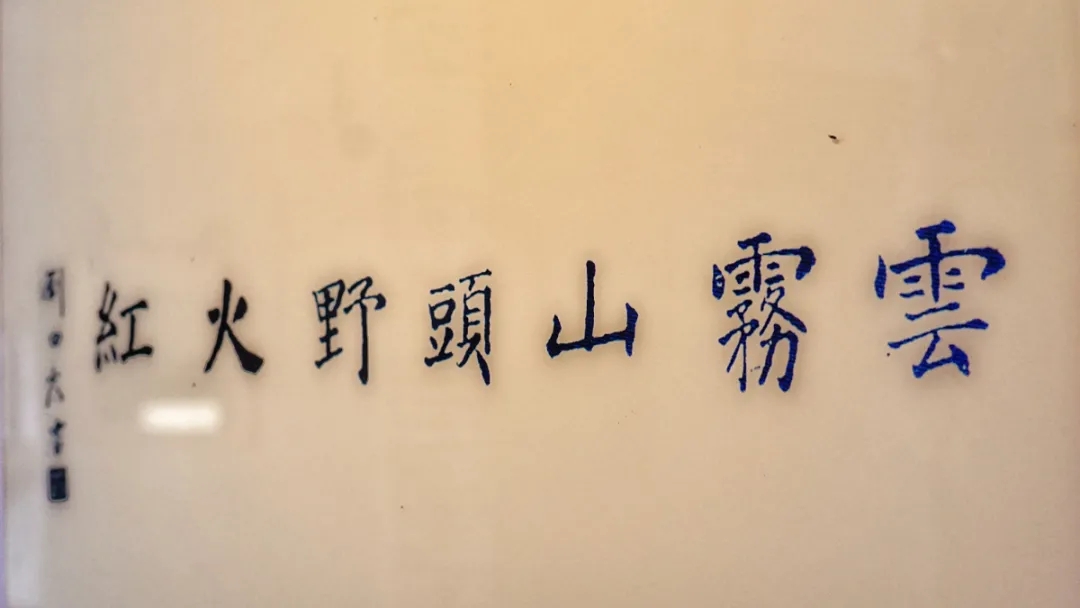 雲霧山頭野火紅